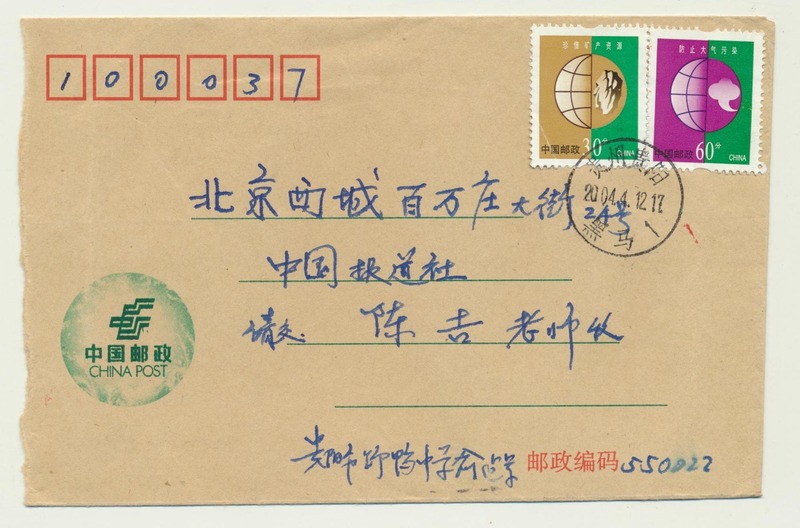 珍惜矿产资源
防止大气污染
中国邮政 30分 CHINA
中国邮政 60分 CHINA
100037
贵州贵阳
2004.4.12.17
黑马 1
北京西城百万庄大街24号
中国报道社
请交: 陈吉老师收
中国邮政
CHINA POST
贵阳市野鸭中学
邮政编码 550022